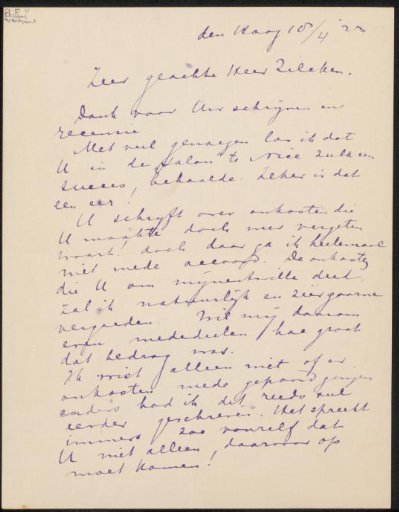 den Haag 18/4 '23
Zeer geachte Heer Zilcken.
Dank voor Uw schrijven en
recensie
Met veel genoegen las ik dat
U in de "Salon" te Nice zulk een
succes, behaalde. Zeker is dat
een eer!
U schrijft over onkosten die
U maakte doch weer vergeten
waart! doch daar ga ik heelemaal
niet mede accoord. De onkosten
die U om mijnentwille deed
zal ik natuurlijk en zéér gaarne
vergoeden. Wil mij daarom
even mededeelen hoe groot
dat bedrag was.
Ik wist alleen niet of er
onkosten mede gepaard gingen
anders had ik dit reeds veel
eerder geschreven. Het spreekt
immers zoo vanzelf dat
U niet alleen, daarvoor op
moet komen!